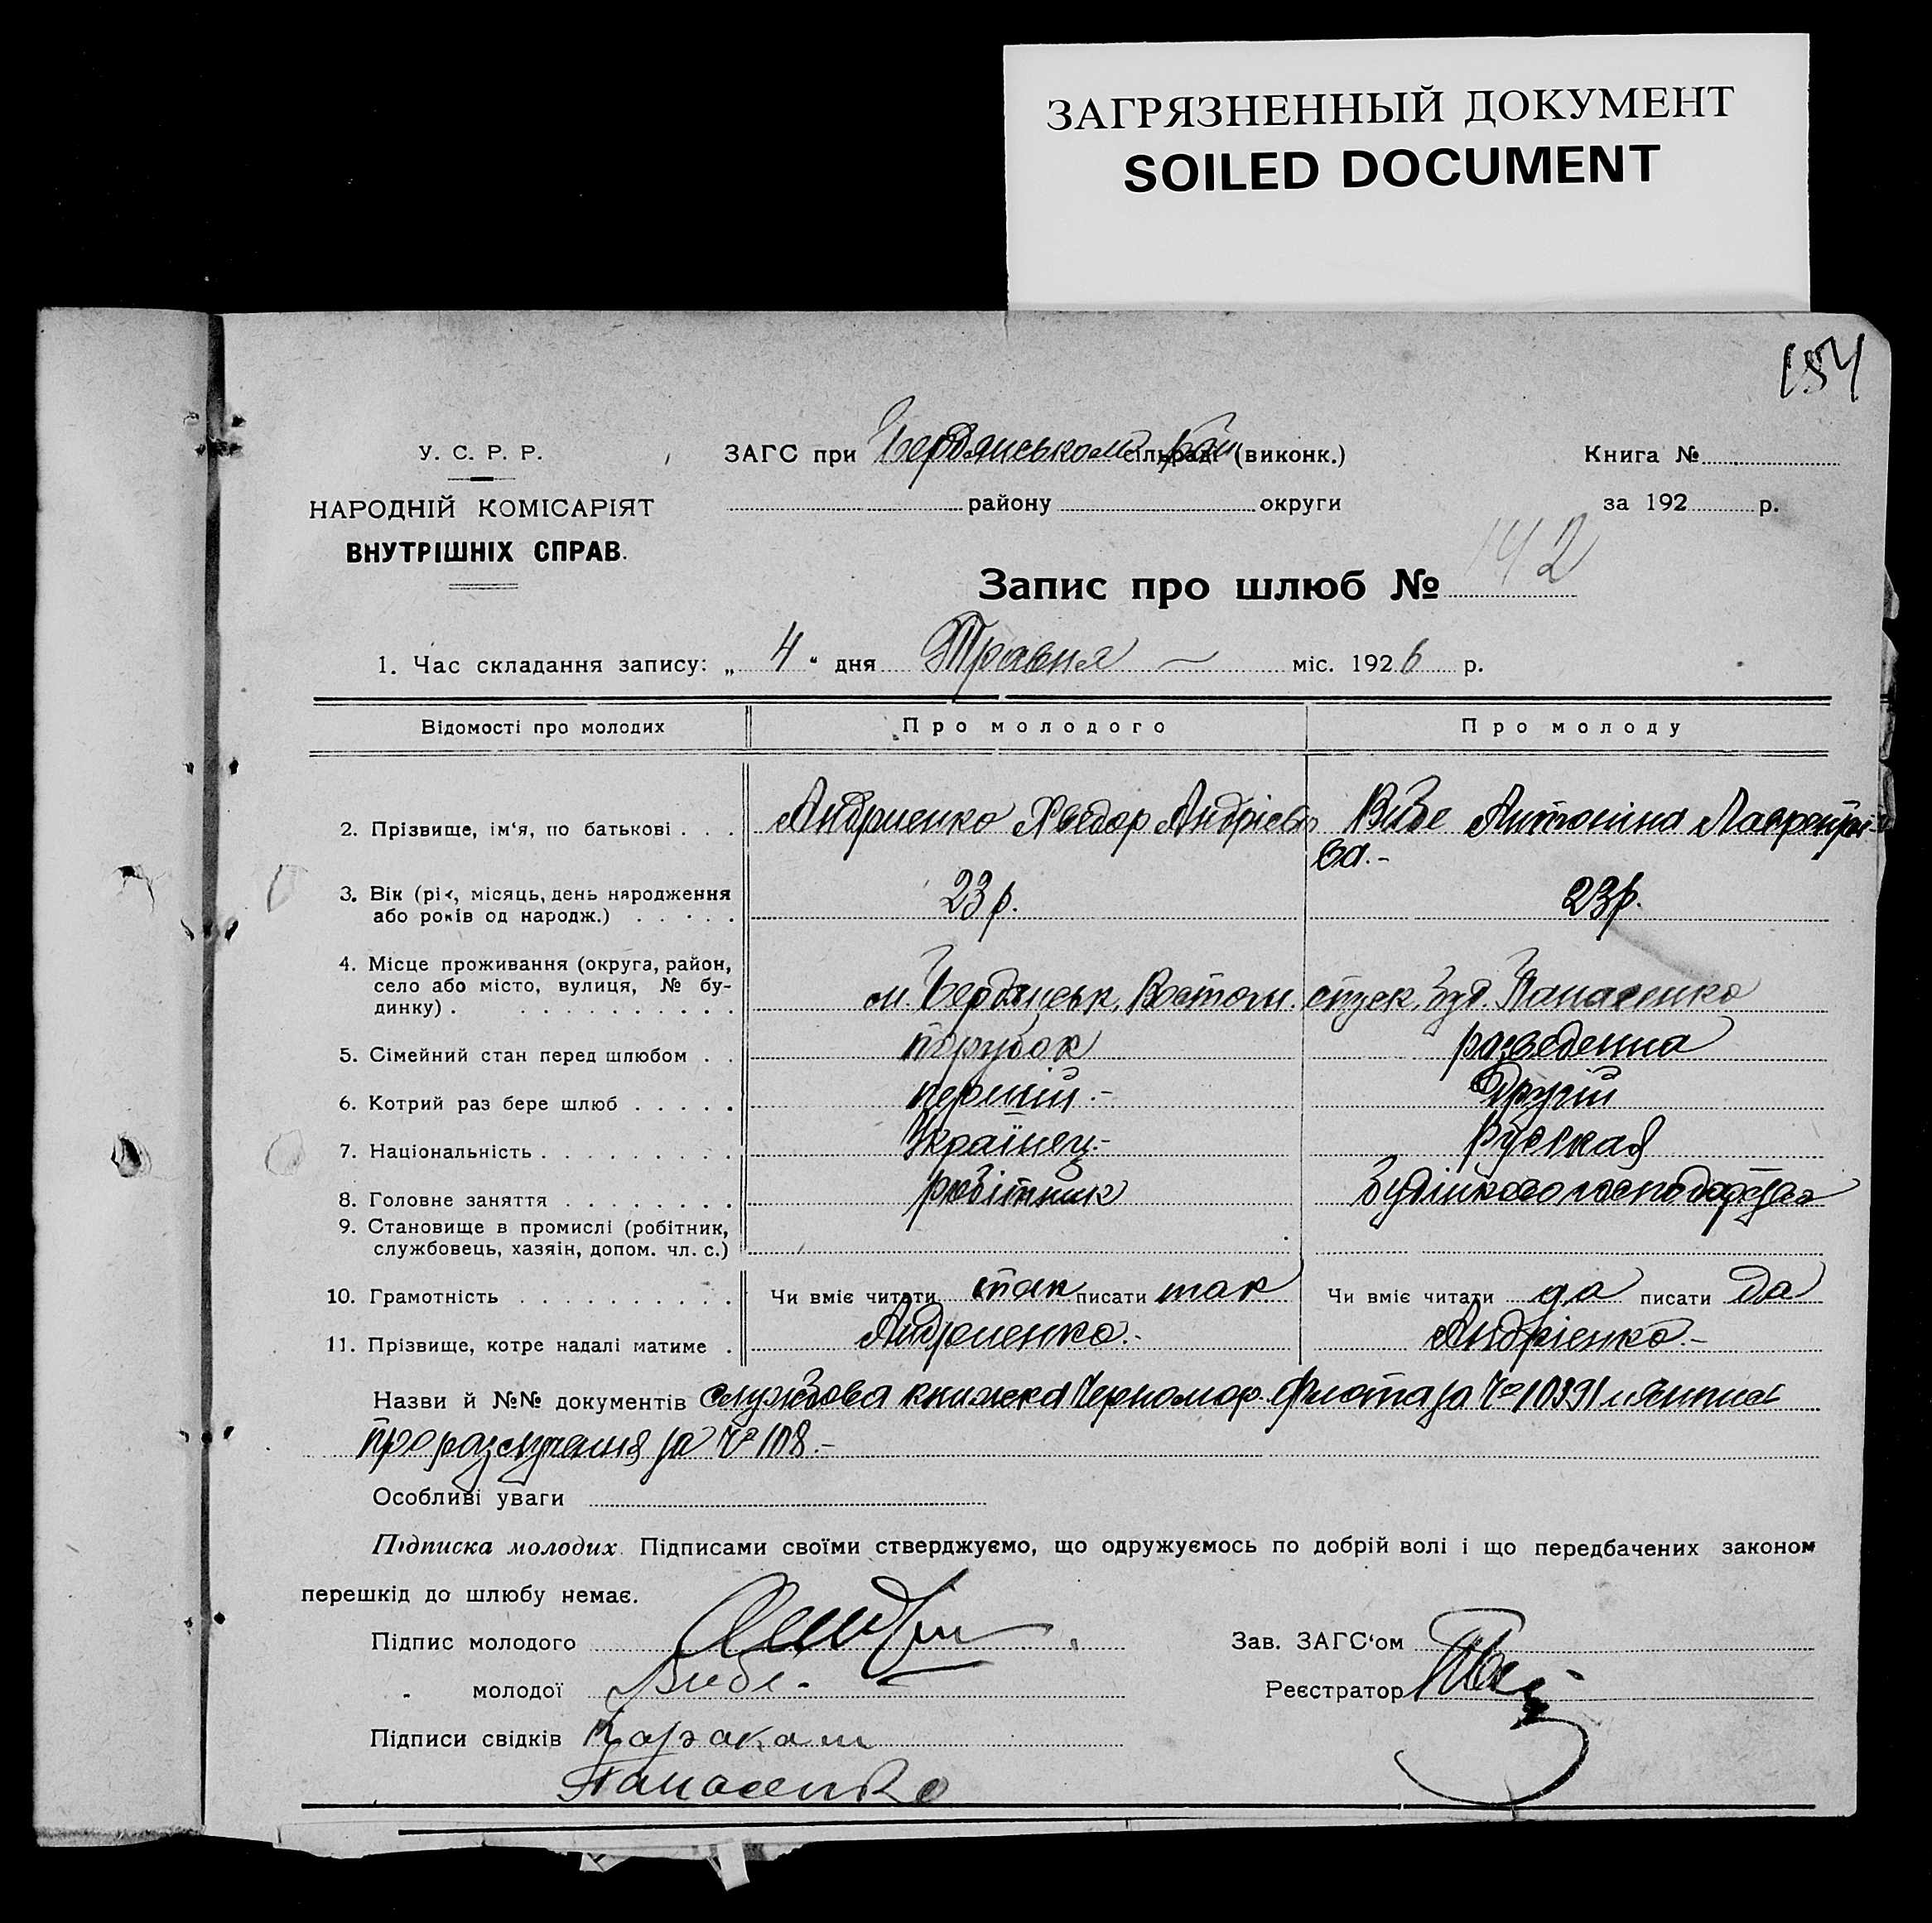 ЗАГРЯЗНЕННЫЙ ДОКУМЕНТ
SOILED DOCUMENT
154
У. С. Р. Р.
НАРОДНІЙ КОМІСАРІЯТ
ВНУТРІШНІХ СПРАВ.
ЗАГС при Бердянському сільраді (виконк.)
району округи
Книга №
за 192 р.
Запис про шлюб № 142
1. Час складання запису: „ 4 “ дня Травня міс. 1926 р.
Відомості про молодих Про молодого Про молоду
2. Прізвище, ім‘я, по батькові . . . Андриенко Хведор Андрієв Вибе Антоніна Лаврентьі-
ва.-
3. Вік (рік, місяць, день народження
або років од народж.) . . . . . 23 р. 23 р.
4. Місце проживання (округа, район,
село або місто, вулиця, № бу-
динку) . . . . . . . . . . . м. Бердянськ, Восточн. спуск, буд. Панасенко
5. Сімейний стан перед шлюбом . . парубок разведенна
6. Котрий раз бере шлюб . . . . . перший.- Другій
7. Національність . . . . . . . . . Українец.- Руская
8. Головне заняття . . . . . . . . робітник
9. Становище в промислі (робітник,
службовець, хазяін, допом. чл. с.)
10. Грамотність . . . . . . . . . . Чи вміє читати так писати так Чи вміє читати да писати да
11. Прізвище, котре надалі матиме . Андриенко.- Андріенко.-
Назви й №№ документів Службова книжка Черномор. Флота за № 10391 и
про разлучення за № 108.-
Особливі уваги
Підписка молодих. Підписами своїми стверджуємо, що одружуємось по добрій волі і що передбачених законом
перешкід до шлюбу немає.
Підпис молодого
Зав. ЗАГС‘ом
„ молодої Вибе.
Реєстратор
Підписи свідків
Панасенко